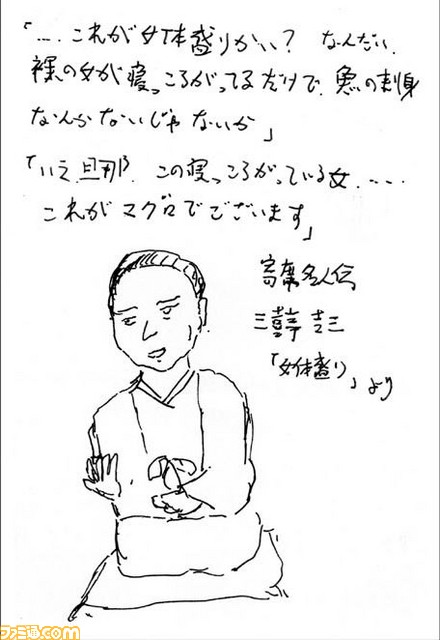 「‥‥これが女体盛りかい? なんだい、
裸の女が寝っころがってるだけで、魚の刺身
なんかないじゃないか」
「いえ、旦那、この寝っころがっている女‥‥
これがマグロでございます」
寄席名人伝
三
「女体盛り」より
ファミ通.com